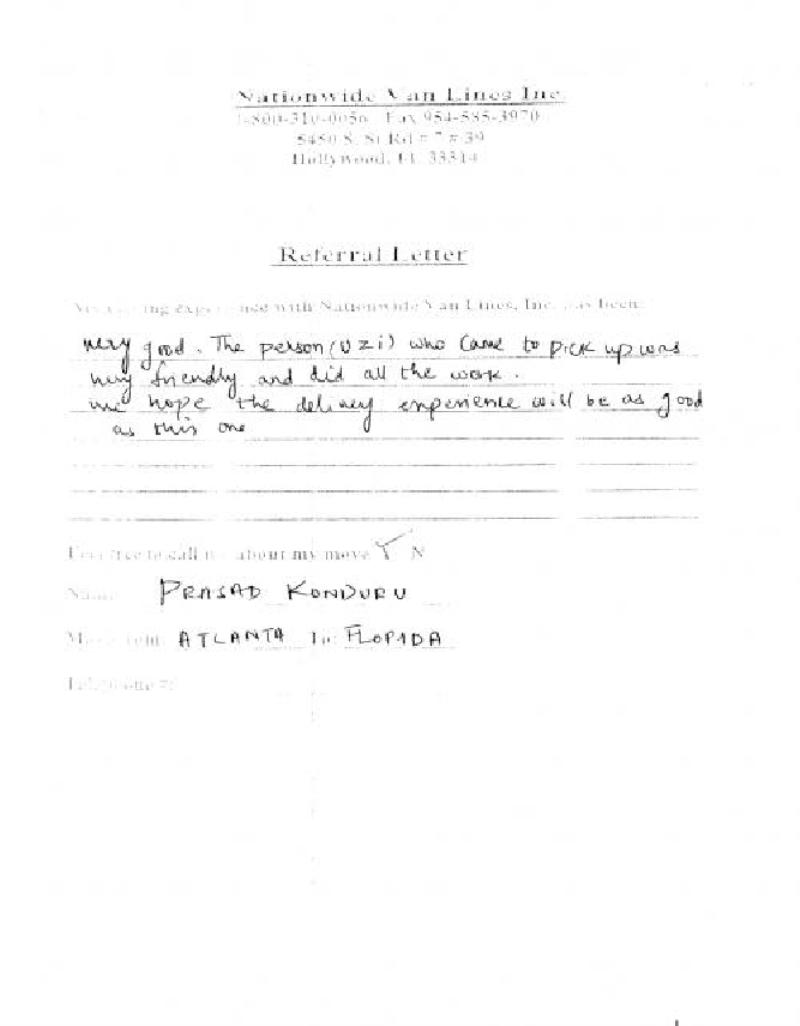 Nationwide Van Lines Inc.
1-800-310-0056 Fax 954-585-3970
5450 S. St Rd # 7 # 39
Hollywood, FL 33314
Referral Letter
experience with Nationwide Van Lines, Inc. has been:
very good. The person (Uzi) who came to pick up was
very friendly and did all the work.
we hope the delivery experience will be as good
as this one
Feel free to call me about my move Y N
Name: PRASAD KONDURU
Move from: ATLANTA To: FLORIDA
Telephone #: